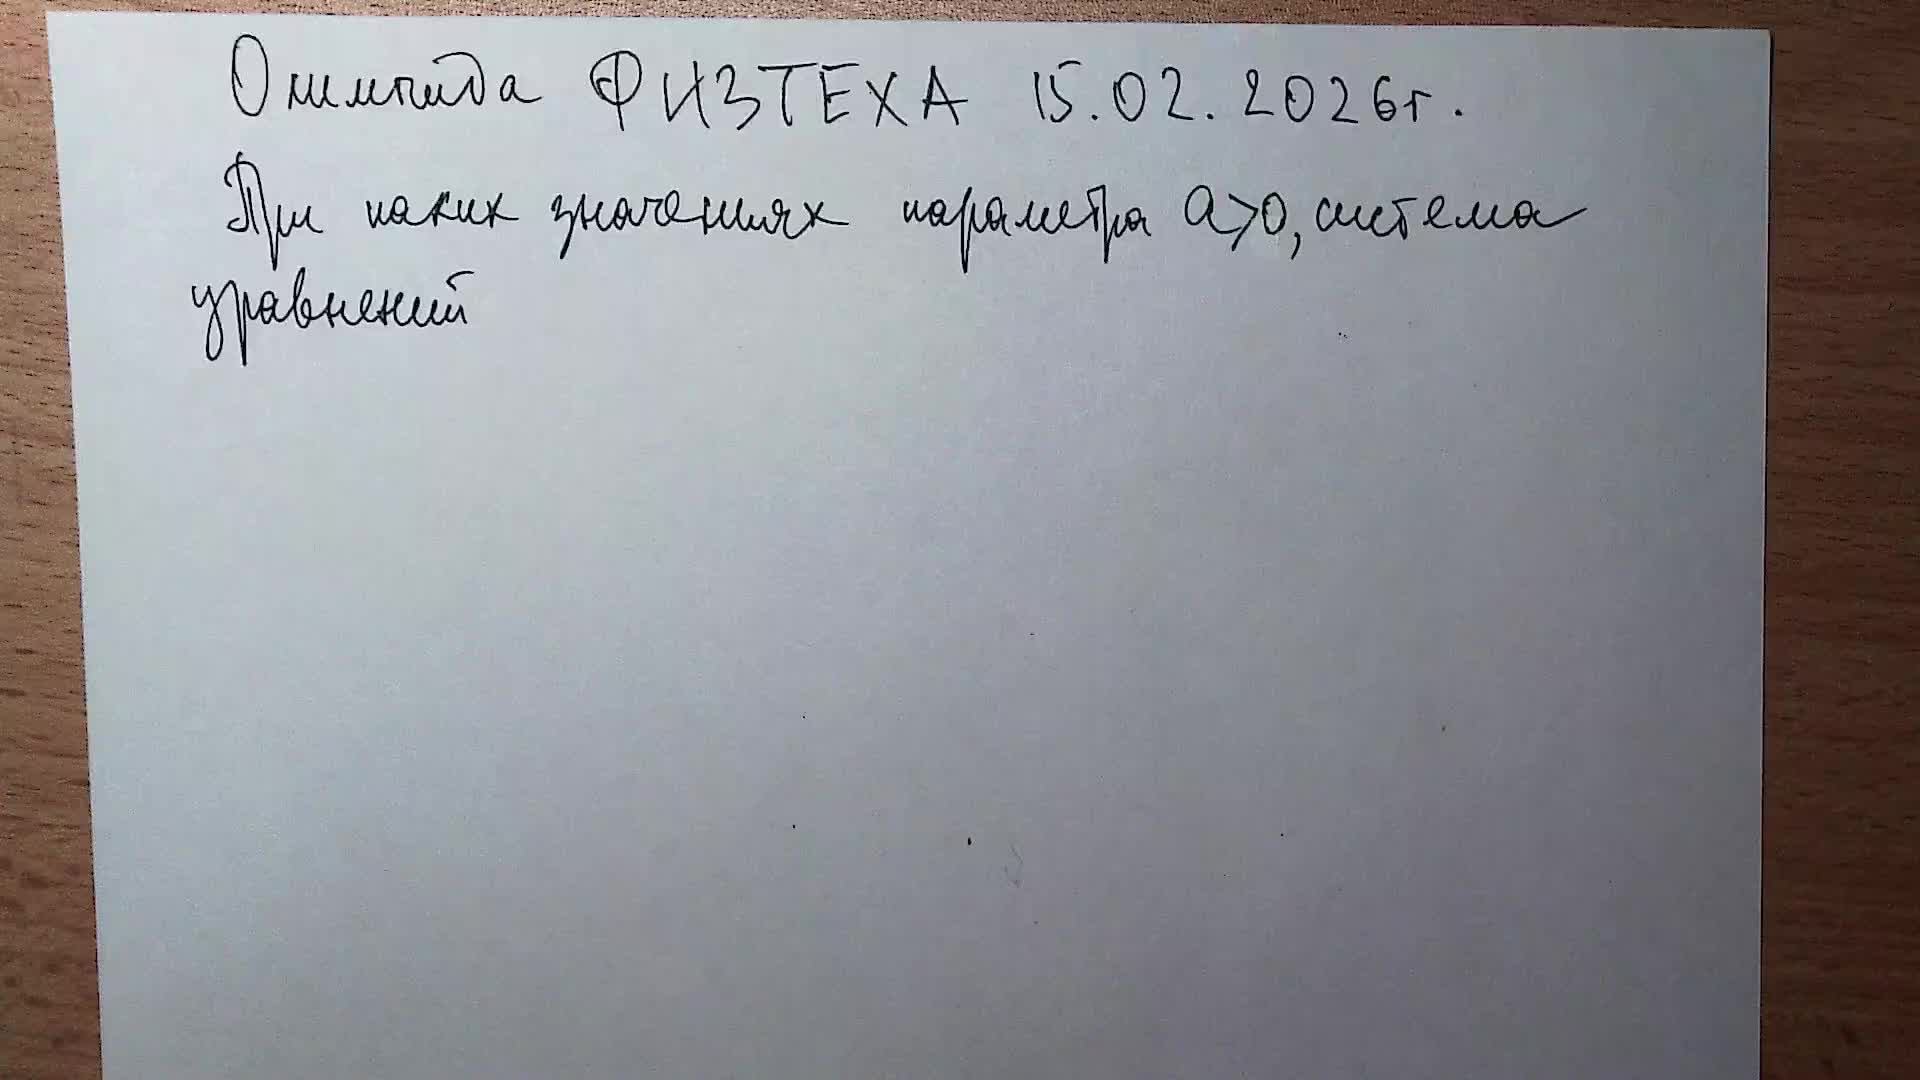 Олимпида ФИЗТЕХА 15.02.2026г.
При каких значениях параметра a>0, система
уравнений